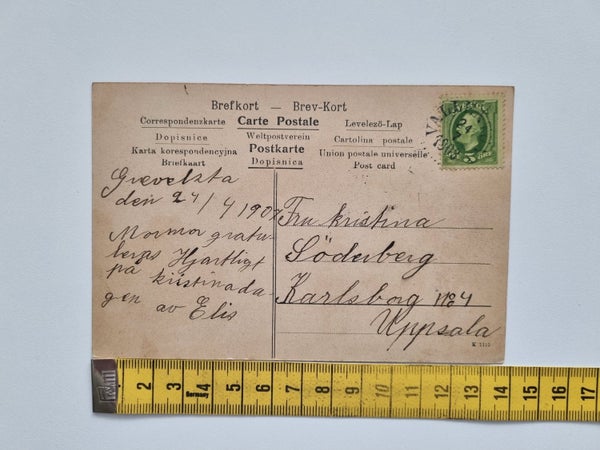 Brefkort — Brev-Kort
Correspondenzkarte Carte Postale Levelező-Lap
Dopisnice Weltpostverein Cartolina postale
Karta korespondencyjna Postkarte Union postale universelle
Briefkaart Dopisnica Post card
den 24/4 1907
Mormor gratu-
leras Hjärtligt
på kristinada-
gen
av Elis
Fru Kristina
Söderberg
Karlsborg No 4
Uppsala
5 ÖRE
1 2 3 4 5 6 7 8 9 10 11 12 13 14 15 16 17
Germany